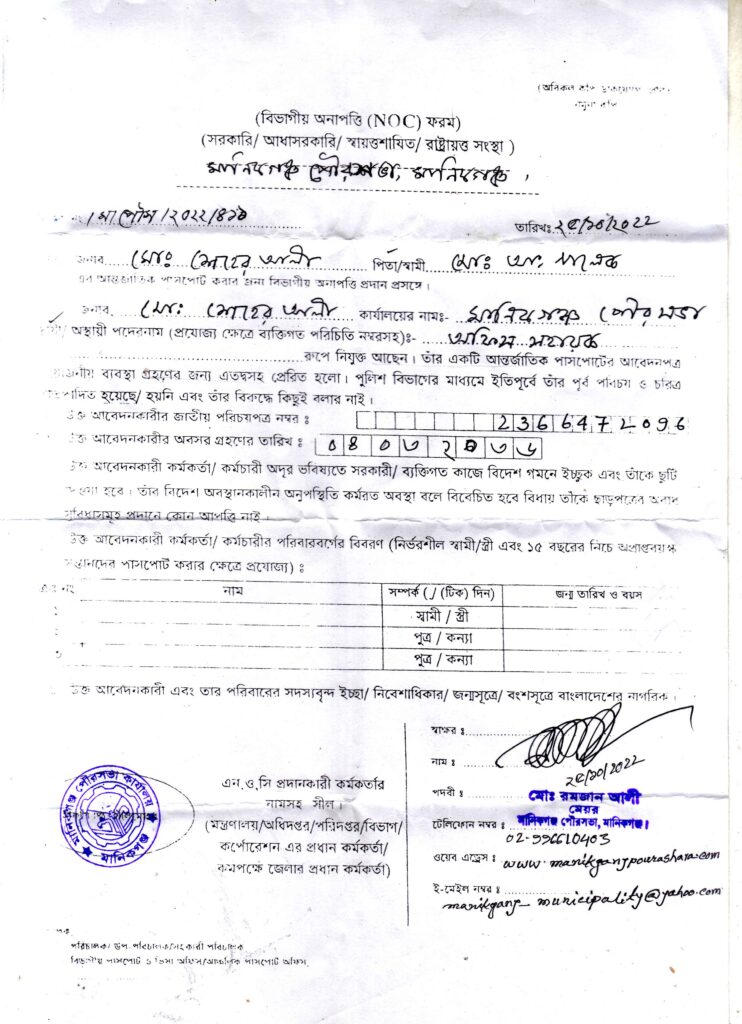 (বিভাগীয় অনাপত্তি (NOC) ফরম)
(সরকারি/ আধাসরকারি/ স্বায়ত্তশাষিত/ রাষ্ট্রায়ত্ত সংস্থা )
মানিকগঞ্জ পৌরসভা, মানিকগঞ্জ ।
তারিখঃ
জনাব মোঃ মোহের আলী পিতা/স্বামী মোঃ আঃ
এর আন্তর্জাতিক পাসপোর্ট করার জন্য বিভাগীয় অনাপত্তি প্রদান প্রসঙ্গে ।
জনাব মোঃ মোহের আলী কার্যালয়ের নামঃ- মানিকগঞ্জ পৌরসভা
অস্থায়ী পদেরনাম (প্রযোজ্য ক্ষেত্রে ব্যক্তিগত পরিচিতি নম্বরসহ)ঃ- অফিস সহায়ক
রূপে নিযুক্ত আছেন। তাঁর একটি আন্তর্জাতিক পাসপোর্টের আবেদনপত্র
ব্যবস্থা গ্রহণের জন্য এতদ্বসহ প্রেরিত হলো। পুলিশ বিভাগের মাধ্যমে ইতিপূর্বে তাঁর পূর্ব পরিচয় ও চরিত্র
হয়েছে/ হয়নি এবং তাঁর বিরুদ্ধে কিছুই বলার নাই।
উক্ত আবেদনকারীর জাতীয় পরিচয়পত্র নম্বর ঃ 2366472096
উক্ত আবেদনকারীর অবসর গ্রহণের তারিখ ঃ
উক্ত আবেদনকারী কর্মকর্তা/ কর্মচারী অদূর ভবিষ্যতে সরকারী/ ব্যক্তিগত কাজে বিদেশ গমনে ইচ্ছুক এবং তাঁকে ছুটি
হবে। তাঁর বিদেশ অবস্থানকালীন অনুপস্থিতি কর্মরত অবস্থা বলে বিবেচিত হবে বিধায় তাঁকে ছাড়পত্রের
প্রদানে কোন আপত্তি নাই।
উক্ত আবেদনকারী কর্মকর্তা/ কর্মচারীর পরিবারবর্গের বিবরণ (নির্ভরশীল স্বামী/স্ত্রী এবং ১৫ বছরের নিচে অপ্রাপ্তবয়স্ক
সন্তানদের পাসপোর্ট করার ক্ষেত্রে প্রযোজ্য) ঃ
নাম সম্পর্ক (√ (টিক) দিন) জন্ম তারিখ ও বয়স
স্বামী / স্ত্রী
পুত্র / কন্যা
পুত্র / কন্যা
উক্ত আবেদনকারী এবং তার পরিবারের সদস্যবৃন্দ ইচ্ছা/ নিবেশাধিকার/ জন্মসূত্রে/ বংশসূত্রে বাংলাদেশের নাগরিক ।
স্বাক্ষর ঃ
নাম ঃ
এন.ও.সি প্রদানকারী কর্মকর্তার
নামসহ সীল।
(মন্ত্রণালয়/অধিদপ্তর/পরিদপ্তর/বিভাগ/
কর্পোরেশন এর প্রধান কর্মকর্তা/
কমপক্ষে জেলার প্রধান কর্মকর্তা)
মানিকগঞ্জ পৌরসভা কার্যালয়
মানিকগঞ্জ
পদবী ঃ মোঃ রমজান আলী
মেয়র
টেলিফোন নম্বর ঃ মানিকগঞ্জ পৌরসভা, মানিকগঞ্জ।
02-996610403
ওয়েব এড্রেস ঃ www.manikganjpourashava.com
ই-মেইল নম্বর ঃ
manikganj_municipality@yahoo.com
পরিচালক/ উপ-পরিচালক/সহকারী পরিচালক
বিভাগীয় পাসপোর্ট ও ভিসা অফিস/আঞ্চলিক পাসপোর্ট অফিস,